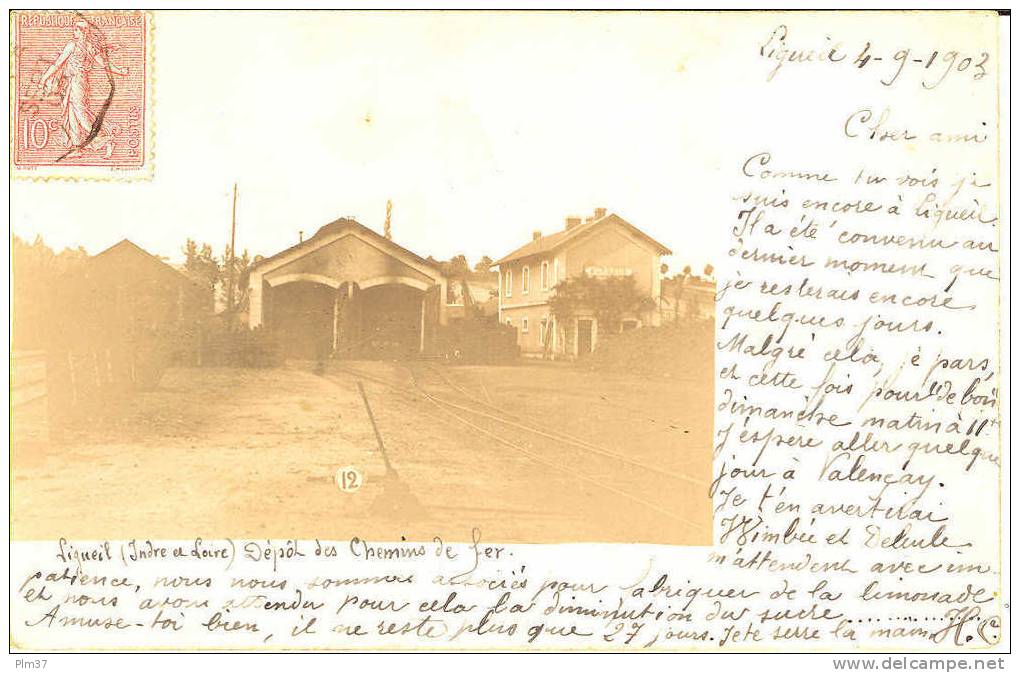 REPUBLIQUE FRANÇAISE
10c
POSTES
Ligueil 4-9-1903
Cher ami
Comme tu vois je
suis encore à Ligueil.
Il a été convenu au
dernier moment que
je resterais encore
quelques jours.
Malgré cela, je pars,
et cette fois pour "de bon"
dimanche matin à 11h
J'espère aller quelque
jour à Valençay.
Je t'en avertirai
Wimbée et
m'attendent avec im-
12
Ligueil (Indre et Loire) Dépôt des Chemins de fer.
patience, nous nous sommes associés pour fabriquer de la limonade
et nous avons attendu pour cela la diminution du sucre..............
Amuse-toi bien, il ne reste plus que 27 jours. Je te serre la main. H. C.
Plm37
www.delcampe.net